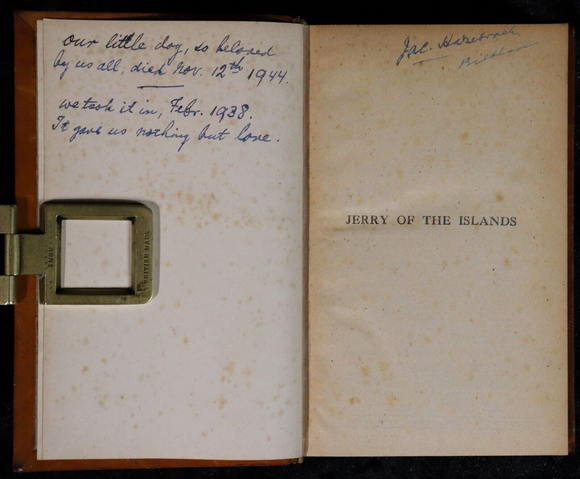 our little dog, so beloved
by us all, died Nov. 12th 1944.
we took it in, Febr. 1938.
It gave us nothing but love.
BRITISH MADE
Jac.
JERRY OF THE ISLANDS